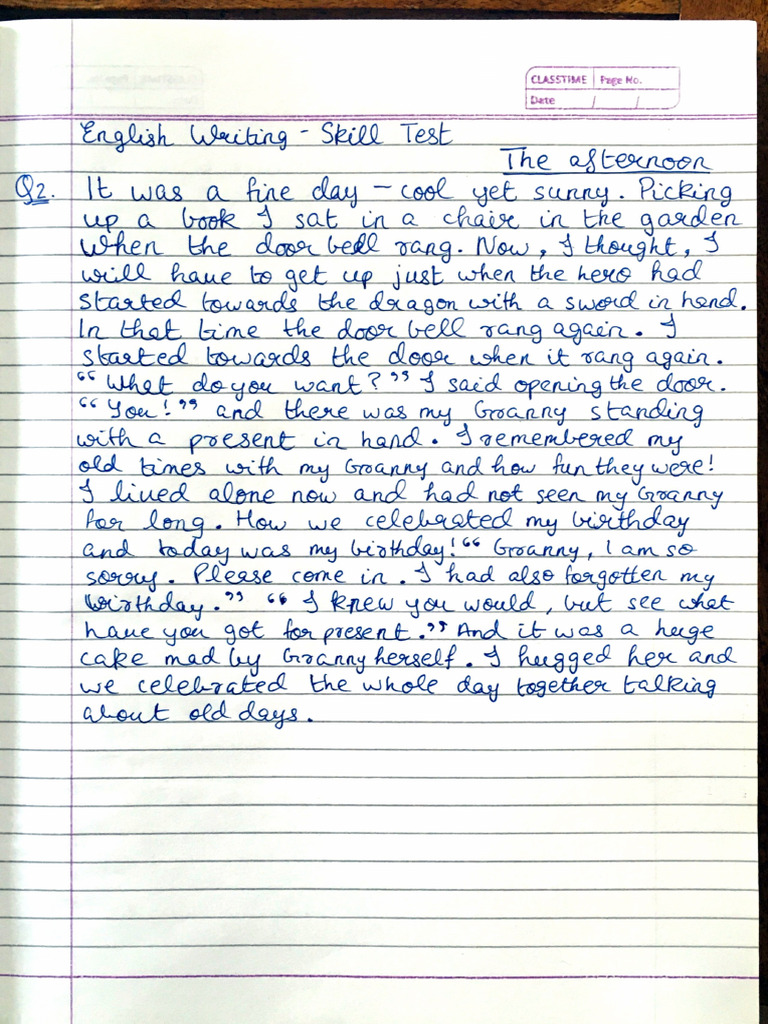 CLASSTIME Page No.
Date / /
English Writing - Skill Test
The afternoon
Q2. It was a fine day – cool yet sunny. Picking
up a book I sat in a chair in the garden
when the door bell rang. Now, I thought, I
will have to get up just when the hero had
started towards the dragon with a sword in hand.
In that time the door bell rang again. I
started towards the door when it rang again.
“What do you want?” I said opening the door.
“You!” and there was my Granny standing
with a present in hand. I remembered my
old times with my Granny and how fun they were!
I lived alone now and had not seen my Granny
for long. How we celebrated my birthday
and today was my birthday! “Granny, I am so
sorry. Please come in. I had also forgotten my
birthday.” “I knew you would, but see what
have you got for present.” And it was a huge
cake mad by Granny herself. I hugged her and
we celebrated the whole day together talking
about old days.